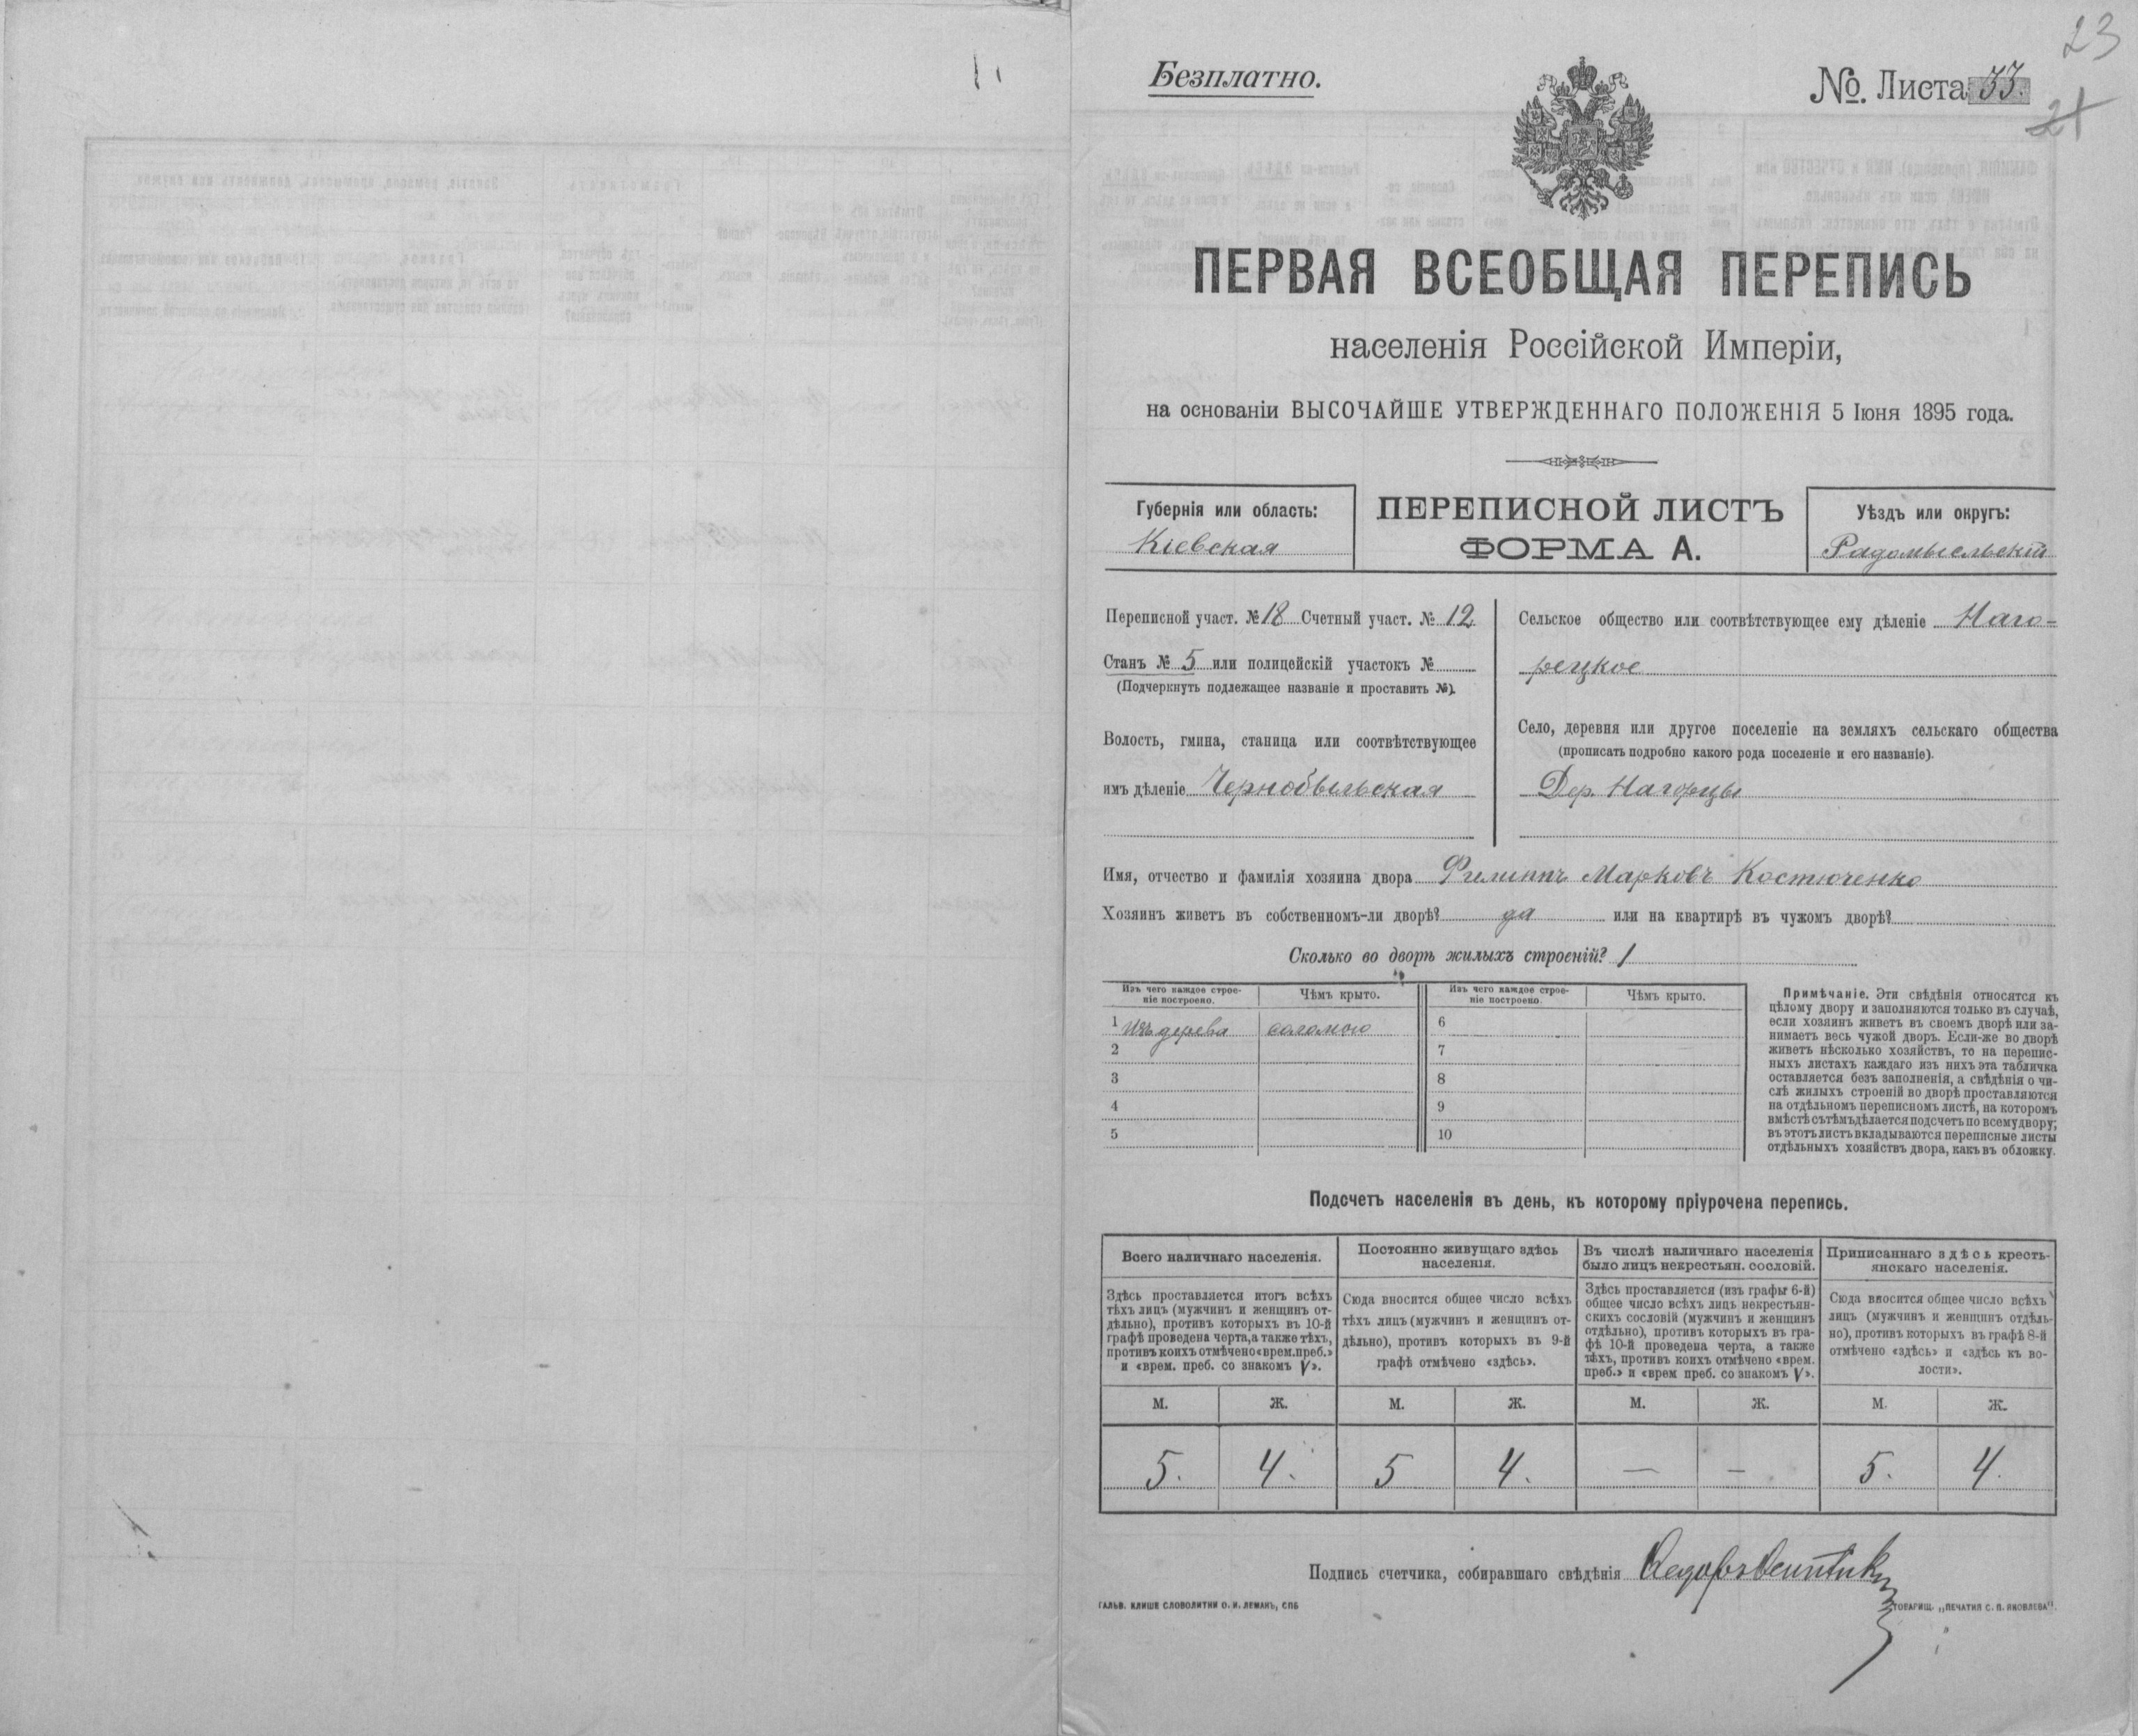 23
Безплатно.
№. Листа 33.
21
ПЕРВАЯ ВСЕОБЩАЯ ПЕРЕПИСЬ
населенія Россійской Имперіи,
на основаніи ВЫСОЧАЙШЕ УТВЕРЖДЕННАГО ПОЛОЖЕНІЯ 5 Іюня 1895 года.
Губернія или область:
Кіевская
ПЕРЕПИСНОЙ ЛИСТЪ
ФОРМА А.
Уѣздъ или округъ:
Радомысльскій
Переписной участ. № 18 Счетный участ. № 12
Станъ № 5 или полицейскій участокъ №
(Подчеркнуть подлежащее названіе и проставить №).
Волость, гмина, станица или соотвѣтствующее
имъ дѣленіе Чернобыльская
Сельское общество или соотвѣтствующее ему дѣленіе Наго-
рецкое
Село, деревня или другое поселеніе на земляхъ сельскаго общества
(прописать подробно какого рода поселеніе и его названіе).
Дер. Нагорцы
Имя, отчество и фамилія хозяина двора Филиппъ Марковъ Костюченко
Хозяинъ живетъ въ собственномъ-ли дворѣ? да или на квартирѣ въ чужомъ дворѣ?
Сколько во дворѣ жилыхъ строеній? 1
Изъ чего каждое строе-
ніе построено.
Чѣмъ крыто.
Изъ чего каждое строе-
ніе построено.
Чѣмъ крыто.
1 изъ дерева соломою 6
2 7
3 8
4 9
5 10
Примѣчаніе. Эти свѣдѣнія относятся къ
цѣлому двору и заполняются только въ случаѣ,
если хозяинъ живетъ въ своемъ дворѣ или за-
нимаетъ весь чужой дворъ. Если-же во дворѣ
живетъ нѣсколько хозяйствъ, то на перепис-
ныхъ листахъ каждаго изъ нихъ эта табличка
оставляется безъ заполненія, а свѣдѣнія о чи-
слѣ жилыхъ строеній во дворѣ проставляются
на отдѣльномъ переписномъ листѣ, на которомъ
вмѣстѣ съ тѣмъ дѣлается подсчетъ по всему двору;
въ этотъ листъ вкладываются переписные листы
отдѣльныхъ хозяйствъ двора, какъ въ обложку.
Подсчетъ населенія въ день, къ которому пріурочена перепись.
Всего наличнаго населенія.
Здѣсь проставляется итогъ всѣхъ
тѣхъ лицъ (мужчинъ и женщинъ от-
дѣльно), противъ которыхъ въ 10-й
графѣ проведена черта, а также тѣхъ,
противъ коихъ отмѣчено «врем. преб.»
и «врем. преб. со знакомъ V».
Постоянно живущаго здѣсь
населенія.
Сюда вносится общее число всѣхъ
тѣхъ лицъ (мужчинъ и женщинъ от-
дѣльно), противъ которыхъ въ 9-й
графѣ отмѣчено «здѣсь».
Въ числѣ наличнаго населенія
было лицъ некрестьян. сословій.
Здѣсь проставляется (изъ графы 6-й)
общее число всѣхъ лицъ некрестьян-
скихъ сословій (мужчинъ и женщинъ
отдѣльно), противъ которыхъ въ гра-
фѣ 10-й проведена черта, а также
тѣхъ, противъ коихъ отмѣчено «врем.
преб.» и «врем преб. со знакомъ V».
Приписаннаго здѣсь кресть-
янскаго населенія.
Сюда вносится общее число всѣхъ
лицъ (мужчинъ и женщинъ отдѣль-
но), противъ которыхъ въ графѣ 8-й
отмѣчено «здѣсь» и «здѣсь къ во-
лости».
М. Ж. М. Ж. М. Ж. М. Ж.
5. 4. 5 4. — — 5. 4.
Подпись счетчика, собиравшаго свѣдѣнія
ГАЛЬВ. КЛИШЕ СЛОВОЛИТНИ О. И. ЛЕМАНЪ, СПБ
ТОВАРИЩ. „ПЕЧАТНЯ С. П. ЯКОВЛЕВА".